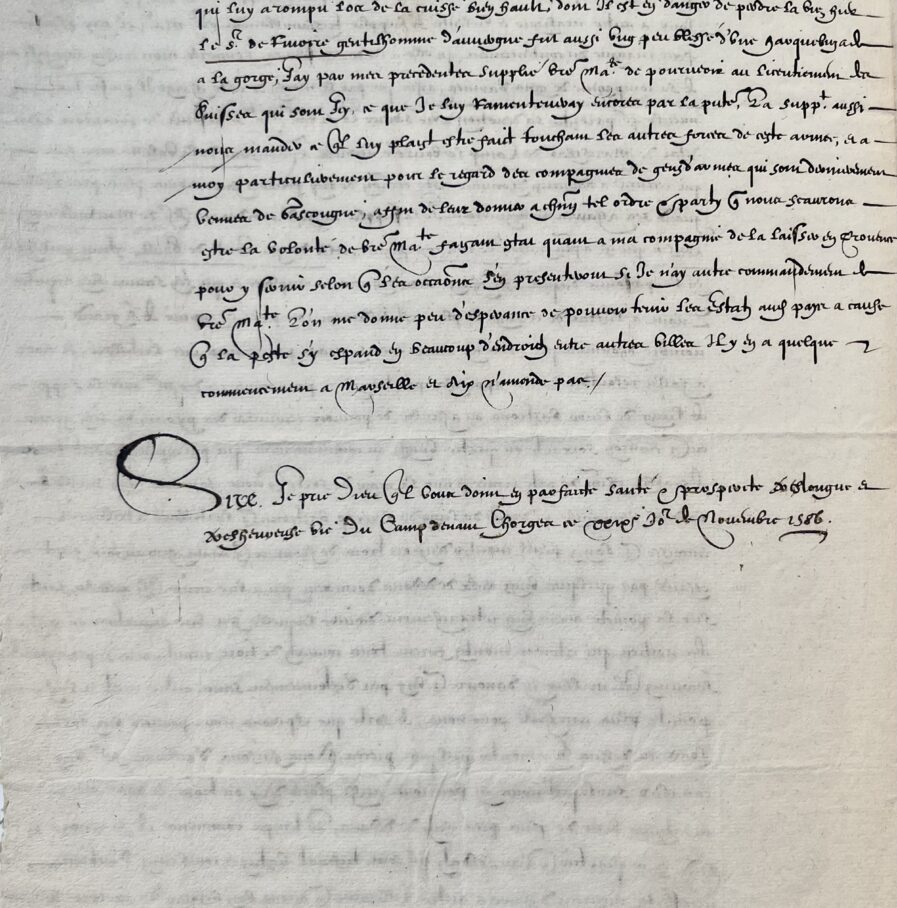 qui luy a rompu l'os de la cuisse bien hault, dont Il est en danger de perdre la vie, hier
le sr de Rivoire gentilhomme d'auvergne fut aussi ung peu blessé d'une harquebuzade
a la gorge, J'ay par mes precedentes supplié vre Mate de pourveoir au licentiement des
Suisses qui sont Icy, ce que Je luy Ramentevray encores par la pnte, La suppt aussi
nous mander ce ql luy plaist estre faict touchant les autres forces de ceste armee, et a
moy particulierement pour le regard des compagnies de gensd'armes qui sont dernierement
venues de Gascougne, affin de leur donner a chun tel ordre & party q nous scaurons
estre la volonté de vre Mate faisant estat quant a ma compagnie de la laisser en Provence
pour y servir selon q les occaons s'en presenteront si Je n'ay autre commandement de
vre Mate L'on me donne peu d'esperance de pouvoir tenir les Estatz aud paye a cause
q la peste s'y espand en beaucoup d'endroictz entre autres villes Il y en a quelque
commencement a Marseille et Aix n'amende pas /
Sire, Je prie Dieu ql vous doint en parfaicte santé & prosperité treslongue et
tresheureuse vie Du Camp devant Chorges ce xxixe Jor de Novembre 1586.